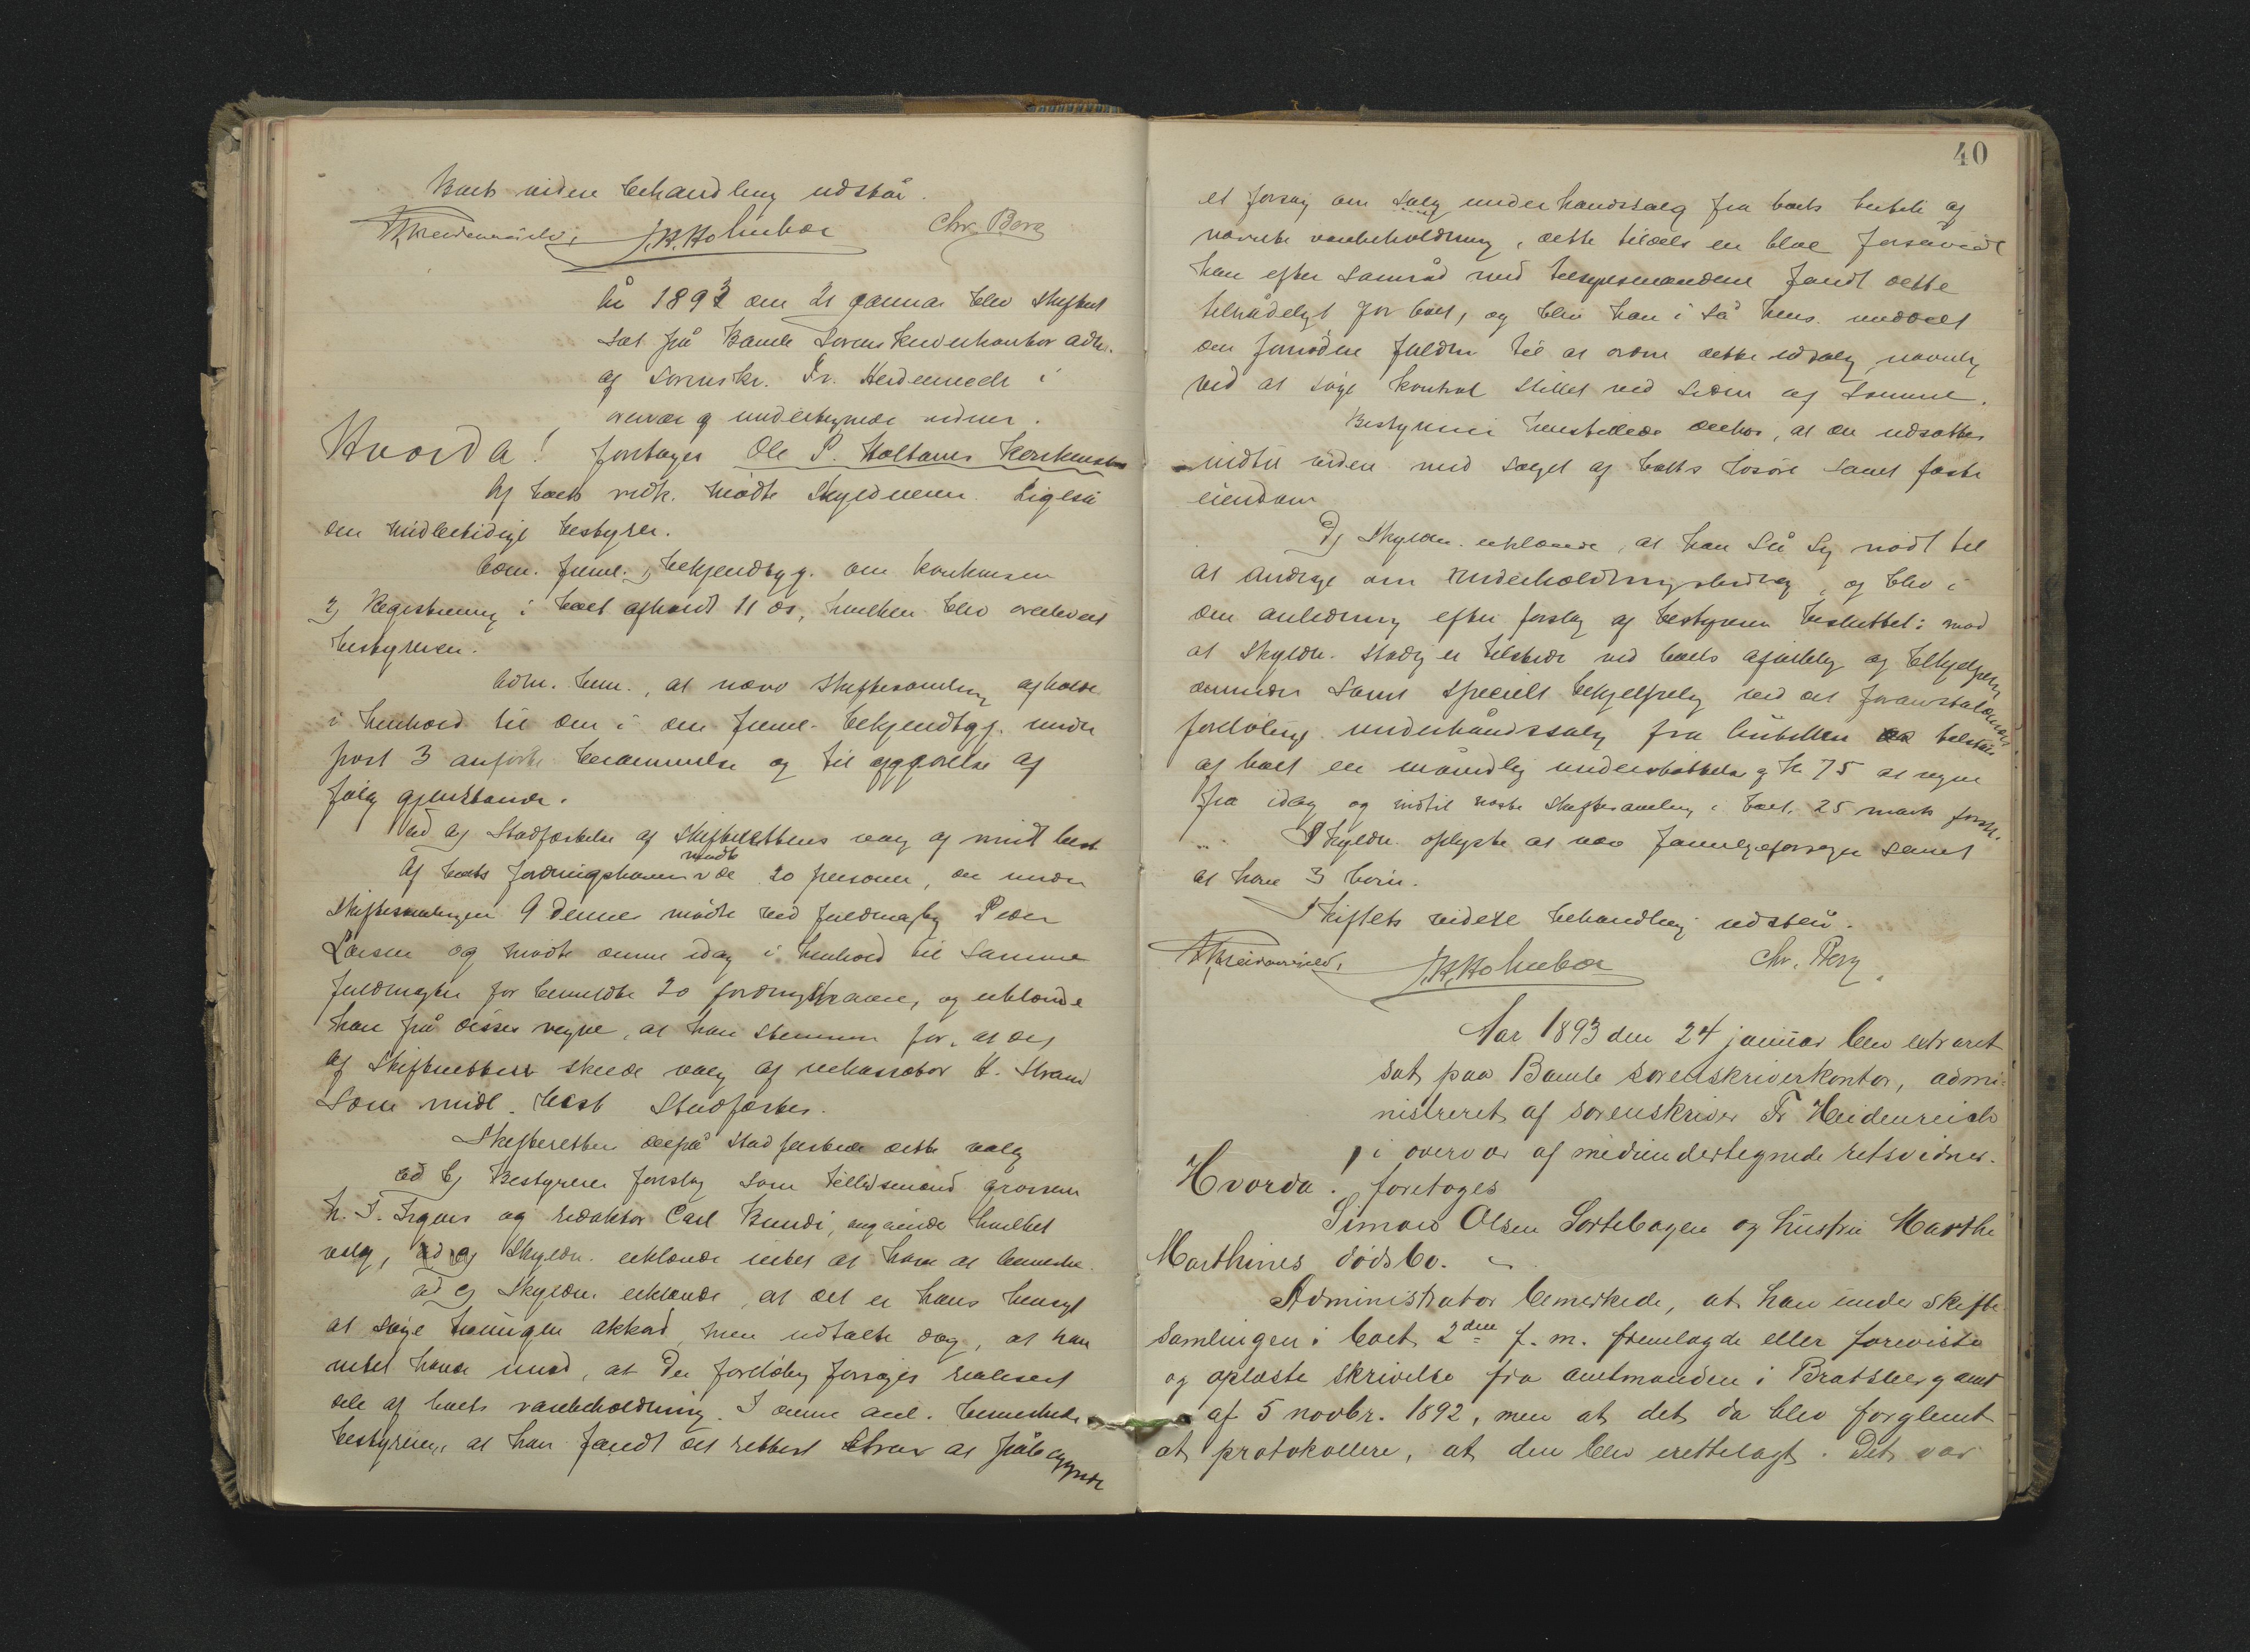 Boets videre behandling udstår.
Fr Heidenreich J.K. Holmboe Chr. Borg
År 1893 den 21 januar blev skifteret
sat på Bamle Sorenskriverkontor adm.
af sorenskr. Fr. Heidenreich i
overvær af undertegnede vidner.
Hvorda! foretages Ole P. Holtanes konkursbo
Af boets vedk. mødte skyldneren. Ligeså
den midlertidige bestyrer.
Adm. freml. 1) bekjendtgj. om konkursen
2) Registrering i boet afholdt 11 ds, hvilken blev overleveret
bestyreren.
Adm. bem., at nærv skiftesamling afholdes
i henhold til den i den freml. bekjendtgj. under
post 3 anførte berammelse og til afgjørelse af
følg gjenstande.
ad a) Stadfæstelse af skifterettens valg af midl best
Af boets fordringshavere mødte de 20 personer, der under
skiftesamlingen 9 dennes mødte ved fuldmægtig Peder
Larsen og mødte denne idag i henhold til samme
fuldmagter for bemeldte 20 fordringshavere, og erklærede
han på disses vegne, at han stemmer for, at det
af skifteretten skeede valg af inkassator H. Strand
som midl. best stadfæstes.
Skifteretten derpå stadfæstede dette valg
ad b) Bestyreren foreslog som tillidsmænd grosserer
h. J. Irgens og redaktør Carl Bundi, angående hvilket
valg, skyldn. erklærede intet at have at bemærke.
ad c) Skyldn. erklærede, at det er hans hensigt
at søge tvungen akkord, men udtalte dog, at han
intet havde imod, at der foreløbig forsøges realiseret
dele af boets varebeholdning. I denne anl. bemerkede
bestyreren, at han fandt det rettest strax at påbegynde
40
et forsøg om salg underhåndssalg fra boets butik af
nævnte varebeholdning, dette tildels en bloc forsåvidt
han efter samråd med tilsynsmændene fandt dette
tilrådeligt for boet, og blev han i så hens. meddelt
den fornødne fuldm til at ordne dette udsalg, navnlig
ved at søge kontrol stillet ved siden af samme.
Bestyreren henstillede derhos, at der udsættes
indtil videre med salget af boets løsøre samt faste
eiendom
d) Skyldn. erklærede, at han så sig nødt til
at andrage om underholdningsbidrag, og blev i
den anledning efter forslag af bestyreren besluttet: mod
at skyldn. stadig er tilstede ved boets afvikling og behjelpelig
dermed samt specielt behjelpelig ved det foranstaltede
foreløbige underhåndssalg fra butikken tilståes
af boet en månedlig understøttelse af kr 75 at regne
fra idag og indtil næste skiftesamling i boet. 25 mark forsk.
Skyldn. oplyste at være familjeforsørger samt
at have 3 børn.
Skiftets videre behandling udstår.
Fr Heidenreich J.K. Holmboe Chr. Borg
Aar 1893 den 24 januar blev extraret
sat paa Bamle sorenskriverkontor, admi-
nistreret af sorenskriver Fr Heidenreich
i overvær af medundertegnede retsvidner.
Hvorda! foretoges
Simon Olsen Sortebogen og hustru Marthe
Marthines dødsbo.
Administrator bemerkede, at han under skifte
samlingen i boet 2den f. m. fremlagde eller foreviste
og oplæste skrivelse fra amtmanden i Bratsberg amt
af 5 novbr. 1892, men at det da blev forglemt
at protokollere, at den blev irettelagt. Det var